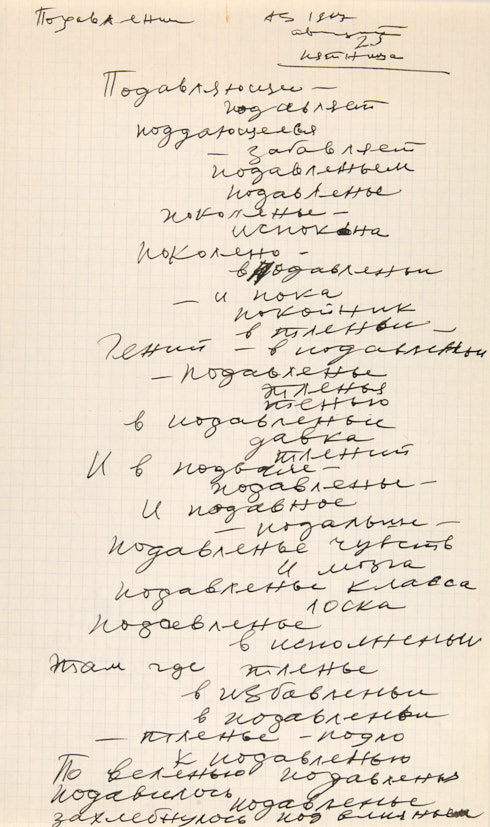 Подавлении
AS 1967
август
25
пятница
Подавляющий –
подавляет
поддающегося
– забавляет
подавленьем
подавленье
поколенье –
испокона
поколено –
в подавленьи
– и пока
покойник
в тленьи –
Гений – в подавленьи
– подавленье
тленья
тенью
в подавленьи
давка
тлений
И в подвале –
подавленье –
И подавное
– подальше –
подавленье чувств
и мозга
подавленье класса
лоска
подавленье
в исполненьи
там где тленье
в избавленьи
в подавленьи
– тленье – подло
к подавленью
По веленью подавленья
подавилось
подавленье
захлебнулось под влияньем